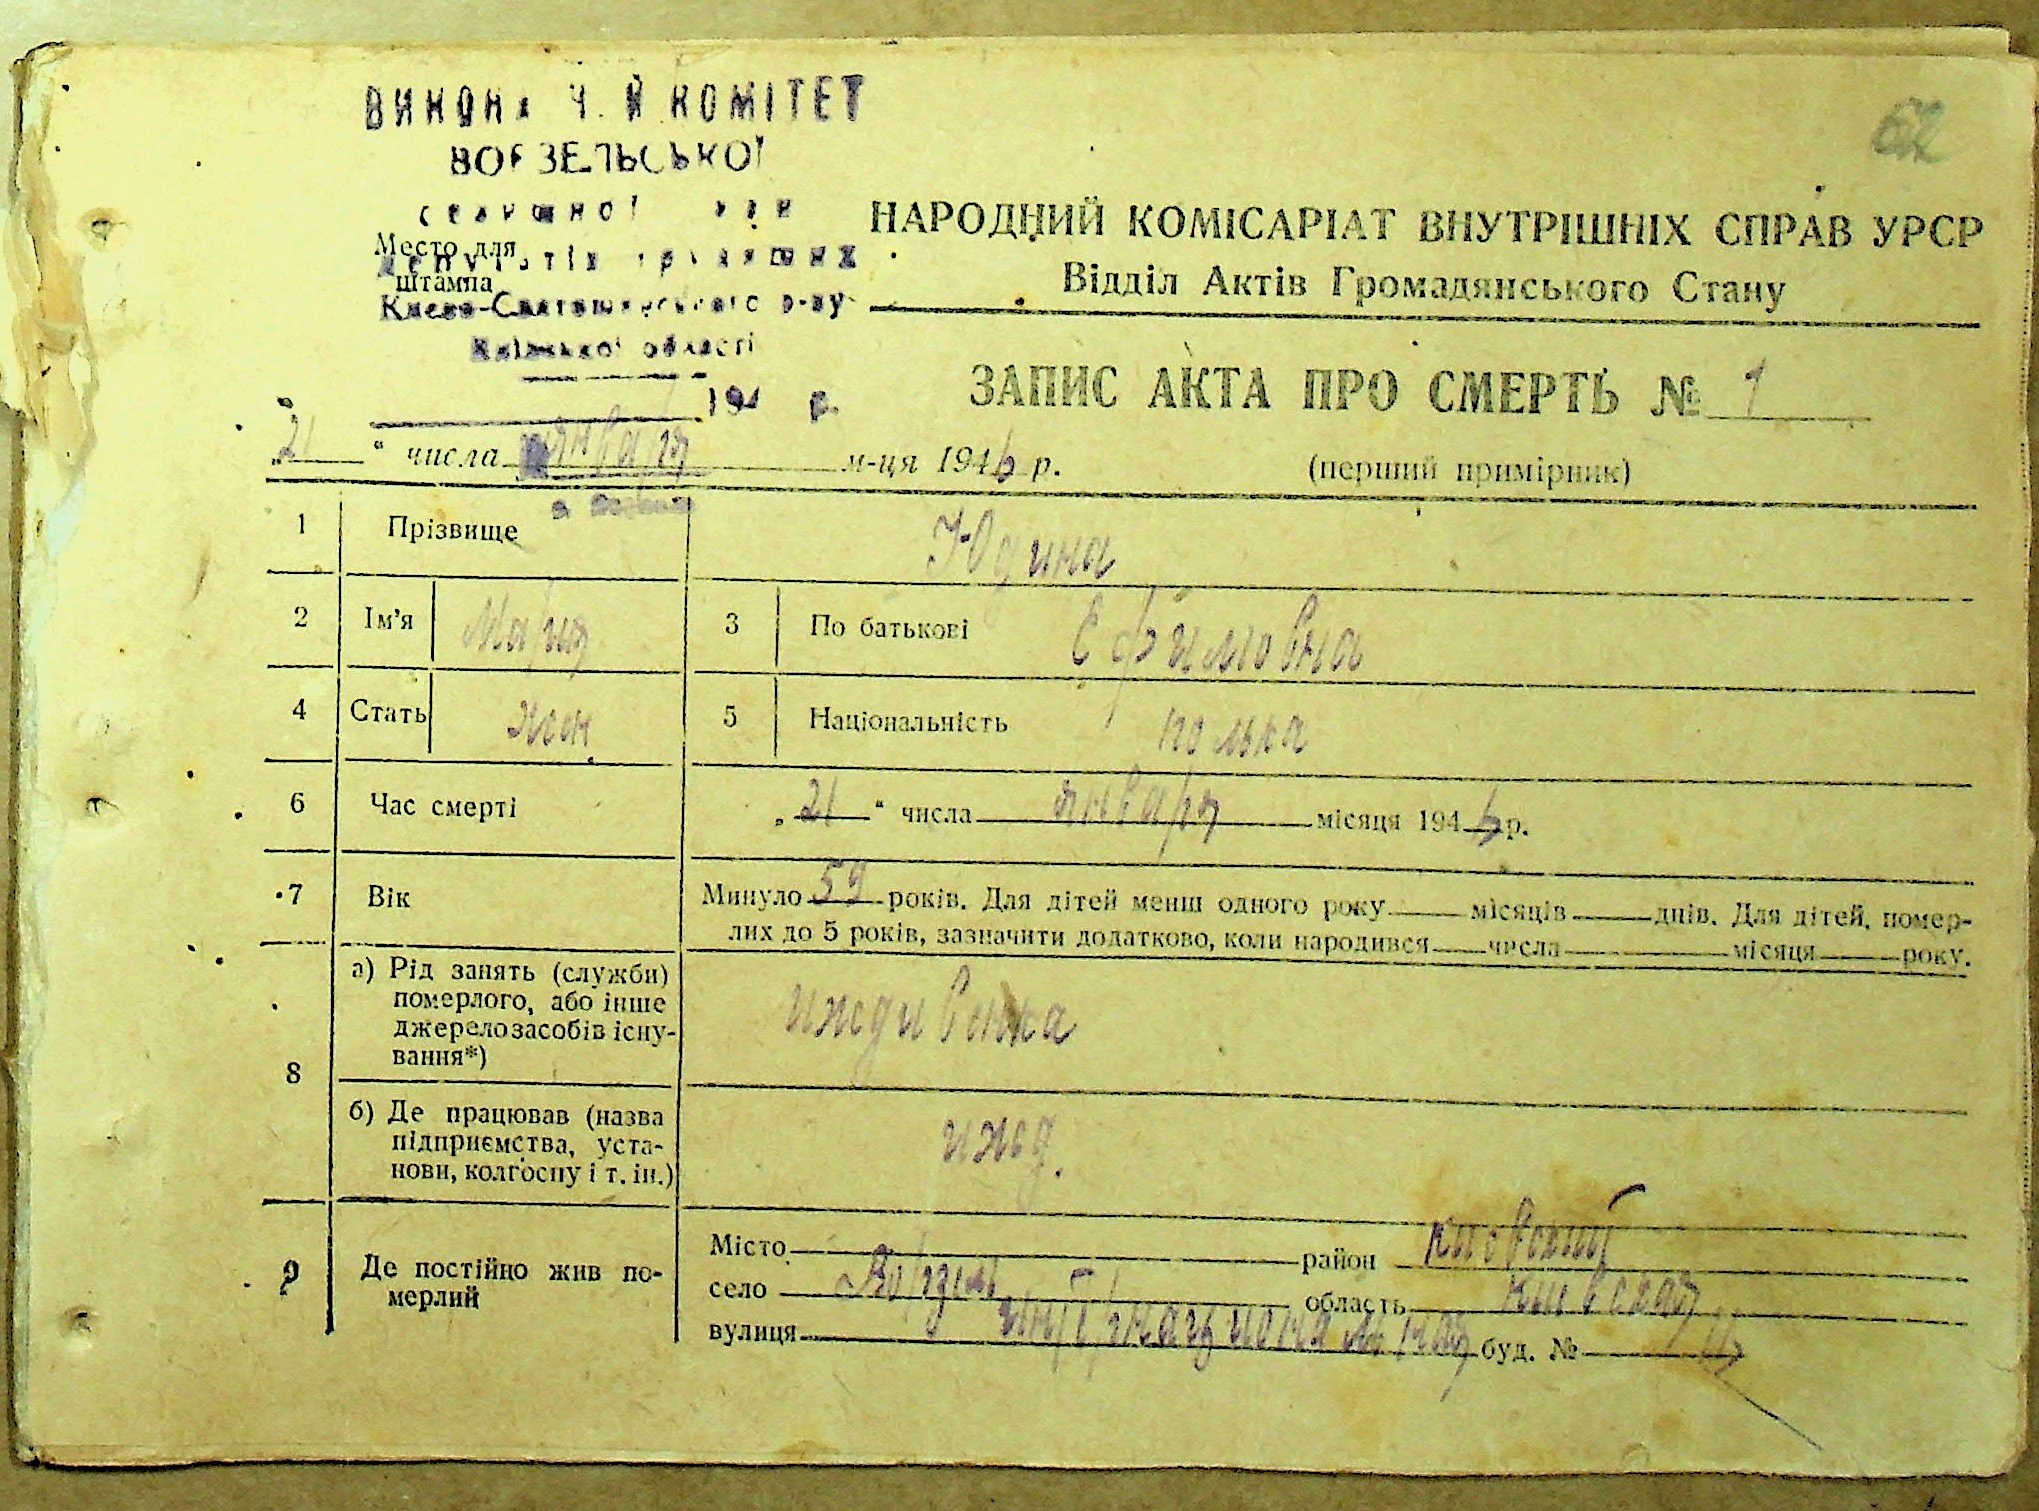 62
ВИКОНАЧИЙ КОМІТЕТ
ВОРЗЕЛЬСЬКОЇ
селищної ради
Место для
депутатів трудящих
штампа
Києво-Святошинського р-ну
Київської області
194 р.
НАРОДНИЙ КОМІСАРІАТ ВНУТРІШНІХ СПРАВ УРСР
Відділ Актів Громадянського Стану
ЗАПИС АКТА ПРО СМЕРТЬ № 1
„21“ числа января м-ця 1946 р. (перший примірник)
1 Прізвище Юдина
2 Ім’я Мария 3 По батькові Ефимовна
4 Стать жен 5 Національність полька
6 Час смерті „21“ числа января місяця 1946 р.
7 Вік Минуло 59 років. Для дітей менш одного року місяців днів. Для дітей, помер-
лих до 5 років, зазначити додатково, коли народився числа місяця року.
8 а) Рід занять (служби)
померлого, або інше
джерело засобів існу-
вання*) иждивенка
б) Де працював (назва
підприємства, уста-
нови, колгоспу і т. ін.) ижд.
9 Де постійно жив по-
мерлий
Місто район Киевский
село Ворзель область Киевская
вулиця интернациональная буд. №